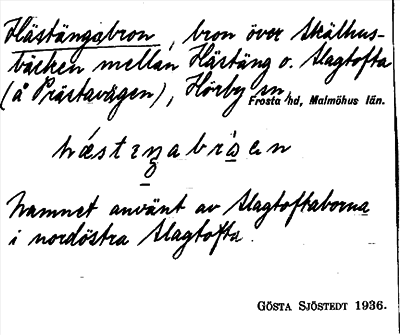 Hästängsbron, bron över Skälhus-
bäcken mellan Hästäng o. Slagtofta
(å Prästavägen), Hörby sn,
Frosta hd, Malmöhus län.
Namnet använt av Slagtoftaborna
i nordöstra Slagtofta.
GÖSTA SJÖSTEDT 1936.